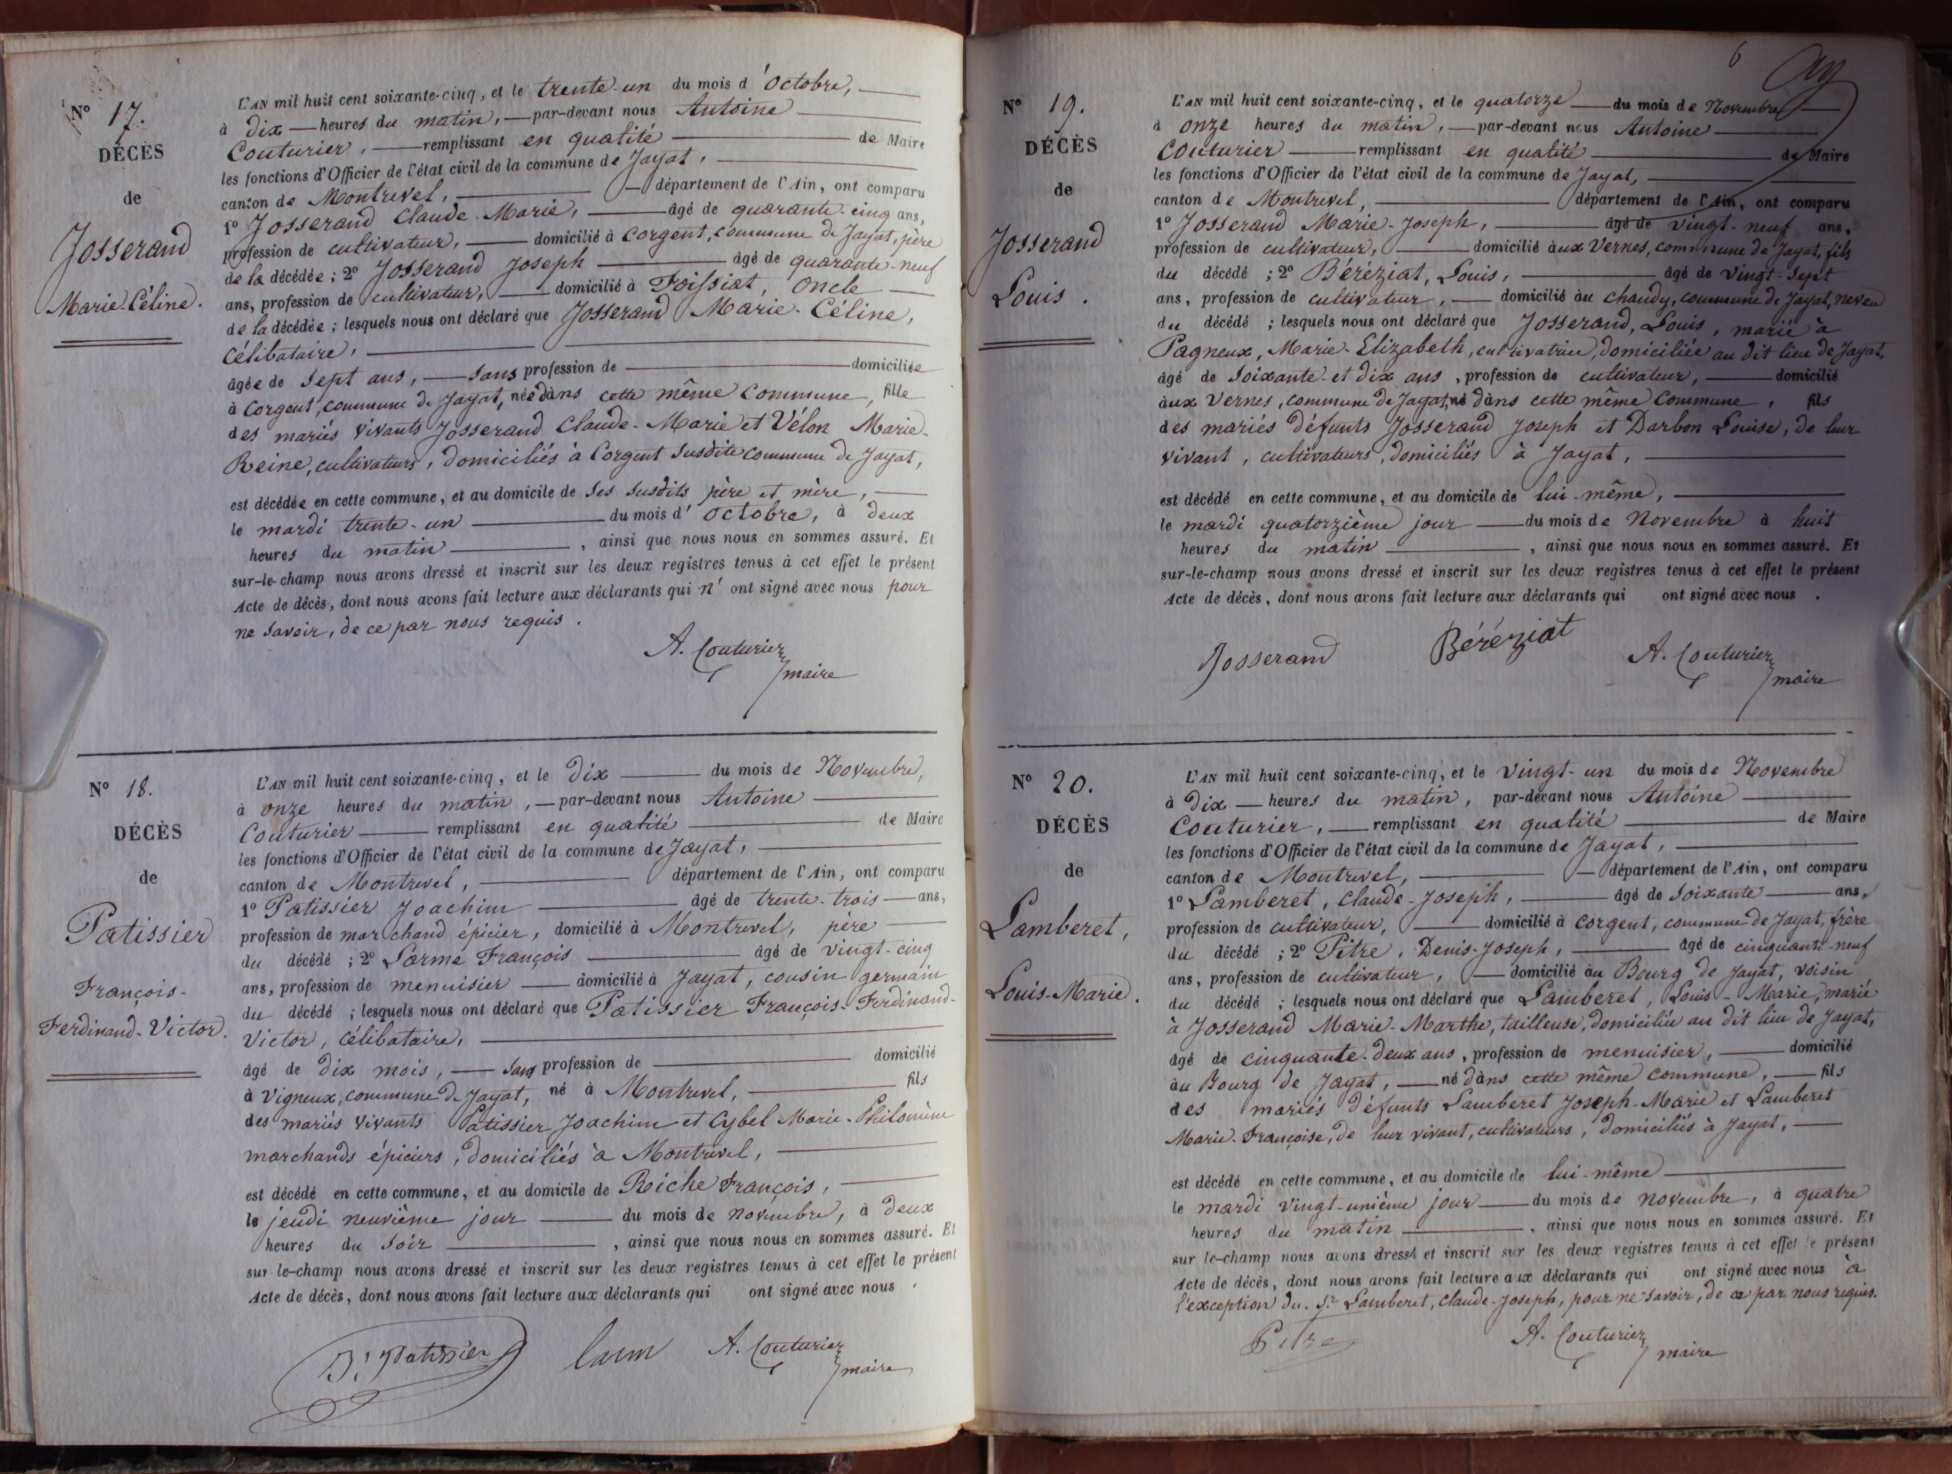 N° 17.
DÉCÈS
de
Josserand
Marie-Céline.
L'AN mil huit cent soixante-cinq, et le trente-un du mois d'Octobre,
à dix heures du matin, par-devant nous Antoine
Couturier, remplissant en qualité de Maire
les fonctions d'Officier de l'état civil de la commune de Jayat,
canton de Montrevel, département de l'Ain, ont comparu
1° Josserand Claude-Marie, âgé de quarante-cinq ans,
profession de cultivateur, domicilié à Corgent, commune de Jayat, père
de la décédée; 2° Josserand Joseph âgé de quarante-neuf
ans, profession de cultivateur, domicilié à Foissiat, Oncle
de la décédée; lesquels nous ont déclaré que Josserand Marie-Céline,
Célibataire,
âgée de sept ans, sans profession de domiciliée
à Corgent, commune de Jayat, née dans cette même commune, fille
des mariés vivants Josserand Claude-Marie et Vélon Marie-
Reine, cultivateurs, domiciliés à Corgent susdite commune de Jayat,
est décédée en cette commune, et au domicile de ses susdits père et mère,
le mardi trente-un du mois d'octobre, à deux
heures du matin, ainsi que nous nous en sommes assuré. Et
sur-le-champ nous avons dressé et inscrit sur les deux registres tenus à cet effet le présent
Acte de décès, dont nous avons fait lecture aux déclarants qui n'ont signé avec nous pour
ne savoir, de ce par nous requis.
A. Couturier
maire
N° 18.
DÉCÈS
de
Patissier
François-
Ferdinand-Victor.
L'AN mil huit cent soixante-cinq, et le dix du mois de Novembre,
à onze heures du matin, par-devant nous Antoine
Couturier remplissant en qualité de Maire
les fonctions d'Officier de l'état civil de la commune de Jayat,
canton de Montrevel, département de l'Ain, ont comparu
1° Patissier Joachim âgé de trente-trois ans,
profession de marchand épicier, domicilié à Montrevel, père
du décédé; 2° Larme François âgé de vingt-cinq
ans, profession de menuisier domicilié à Jayat, cousin germain
du décédé; lesquels nous ont déclaré que Patissier François-Ferdinand-
Victor, célibataire,
âgé de dix mois, sans profession de domicilié
à Vigneux, commune de Jayat, né à Montrevel, fils
des mariés vivants Patissier Joachim et Cybel Marie-Philomène
marchands épiciers, domiciliés à Montrevel,
est décédé en cette commune, et au domicile de Riche François,
le jeudi neuvième jour du mois de novembre, à deux
heures du soir, ainsi que nous nous en sommes assuré. Et
sur le-champ nous avons dressé et inscrit sur les deux registres tenus à cet effet le présent
Acte de décès, dont nous avons fait lecture aux déclarants qui ont signé avec nous.
J. Patissier A. Couturier
maire
6
N° 19.
DÉCÈS
de
Josserand
Louis.
L'AN mil huit cent soixante-cinq, et le quatorze du mois de Novembre
à onze heures du matin, par-devant nous Antoine
Couturier remplissant en qualité de Maire
les fonctions d'Officier de l'état civil de la commune de Jayat,
canton de Montrevel, département de l'Ain, ont comparu
1° Josserand Marie-Joseph, âgé de vingt-neuf ans,
profession de cultivateur, domicilié aux Vernes, commune de Jayat, fils
du décédé; 2° Béréziat, Louis, âgé de vingt-sept
ans, profession de cultivateur, domicilié au chaudy, commune de Jayat, neveu
du décédé; lesquels nous ont déclaré que Josserand, Louis, marié à
Pagneux, Marie-Elizabeth, cultivatrice, domiciliée au dit lieu de Jayat,
âgé de soixante-et dix ans, profession de cultivateur, domicilié
aux Vernes, commune de Jayat, né dans cette même commune, fils
des mariés défunts Josserand Joseph et Darbon Louise, de leur
vivant, cultivateurs, domiciliés à Jayat,
est décédé en cette commune, et au domicile de lui-même,
le mardi quatorzième jour du mois de Novembre à huit
heures du matin, ainsi que nous nous en sommes assuré. Et
sur-le-champ nous avons dressé et inscrit sur les deux registres tenus à cet effet le présent
Acte de décès, dont nous avons fait lecture aux déclarants qui ont signé avec nous.
Josserand Béréziat A. Couturier
maire
N° 20.
DÉCÈS
de
Lamberet,
Louis-Marie.
L'AN mil huit cent soixante-cinq, et le vingt-un du mois de Novembre
à dix heures du matin, par-devant nous Antoine
Couturier, remplissant en qualité de Maire
les fonctions d'Officier de l'état civil de la commune de Jayat,
canton de Montrevel, département de l'Ain, ont comparu
1° Lamberet, Claude-Joseph, âgé de soixante ans,
profession de cultivateur, domicilié à Corgent, commune de Jayat, frère
du décédé; 2° Pitre, Denis-Joseph, âgé de cinquante-neuf
ans, profession de cultivateur, domicilié au Bourg de Jayat, voisin
du décédé; lesquels nous ont déclaré que Lamberet, Louis-Marie, marié
à Josserand Marie-Marthe, tailleuse, domiciliée au dit lieu de Jayat,
âgé de cinquante-deux ans, profession de menuisier, domicilié
au Bourg de Jayat, né dans cette même commune, fils
des mariés défunts Lamberet Joseph-Marie et Lamberet
Marie-Françoise, de leur vivant, cultivateurs, domiciliés à Jayat,
est décédé en cette commune, et au domicile de lui-même
le mardi vingt-unième jour du mois de novembre, à quatre
heures du matin, ainsi que nous nous en sommes assuré. Et
sur le-champ nous avons dressé et inscrit sur les deux registres tenus à cet effet le présent
Acte de décès, dont nous avons fait lecture aux déclarants qui ont signé avec nous à
l'exception du Sr Lamberet, Claude-Joseph, pour ne savoir, de ce par nous requis.
Pitre A. Couturier
maire